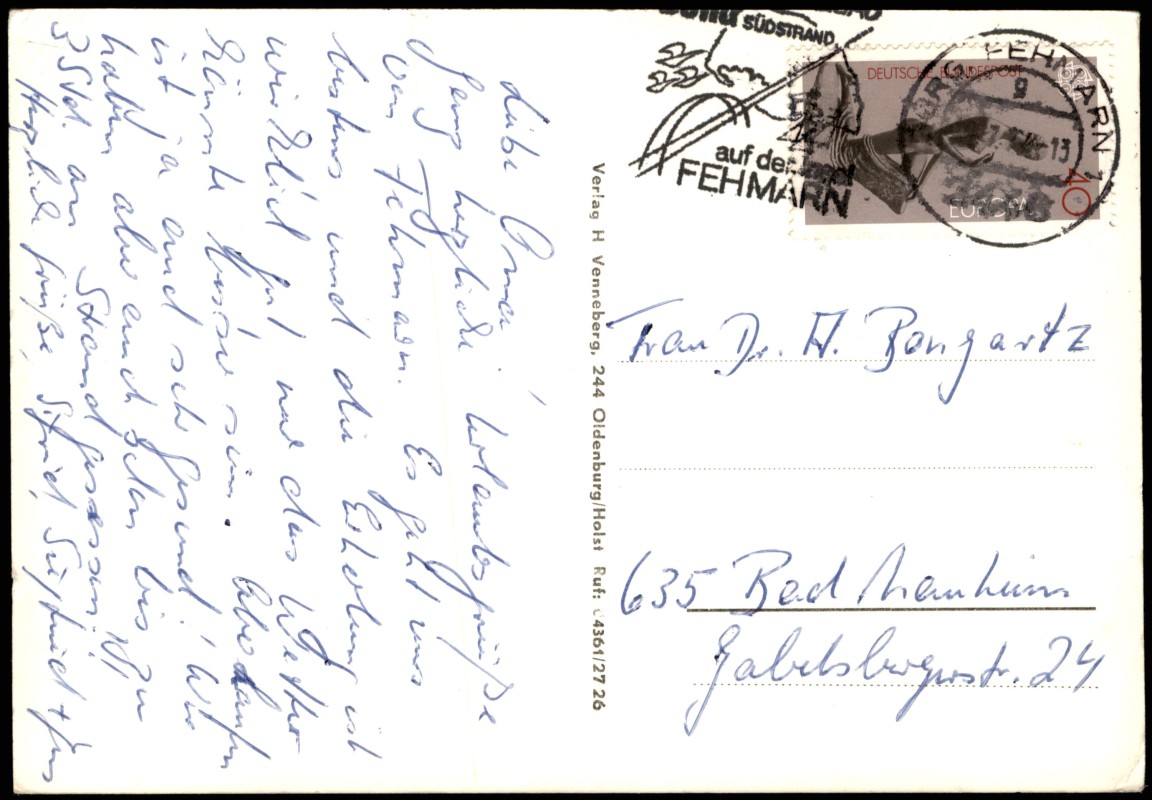 Liebe Oma! Urlaubsgrüße
ganz herzliche
von Fehmarn. Es geht uns
bestens und die Erholung ist
wirklich gut nur das Wetter
könnte besser sein. Aber Laufen
ist ja auch sehr gesund! Wir
haben aber auch schon bis zu
3 Std. am Strand gesessen!
Herzliche Grüße
SÜDSTRAND
auf der
FEHMARN
FEHMARN 1
g
13
DEUTSCHE BUNDESPOST
40
EUROPA
Verlag H Venneberg, 244 Oldenburg/Holst Ruf: 04361/27 26
Frau Dr. H. Bongartz
635 Bad Nauheim
Gabelsbergerstr. 24